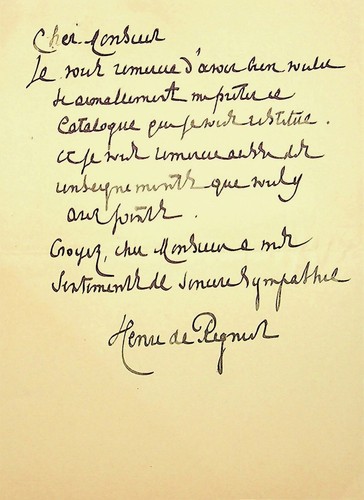 Cher Monsieur
Je vous remercie d'avoir bien voulu
me prêter ce
Catalogue que je vous restitue.
et je vous remercie aussi des
renseignements que vous y
avez joints.
Croyez, cher Monsieur à mes
Sentiments de sincère sympathie
Henri de Régnier